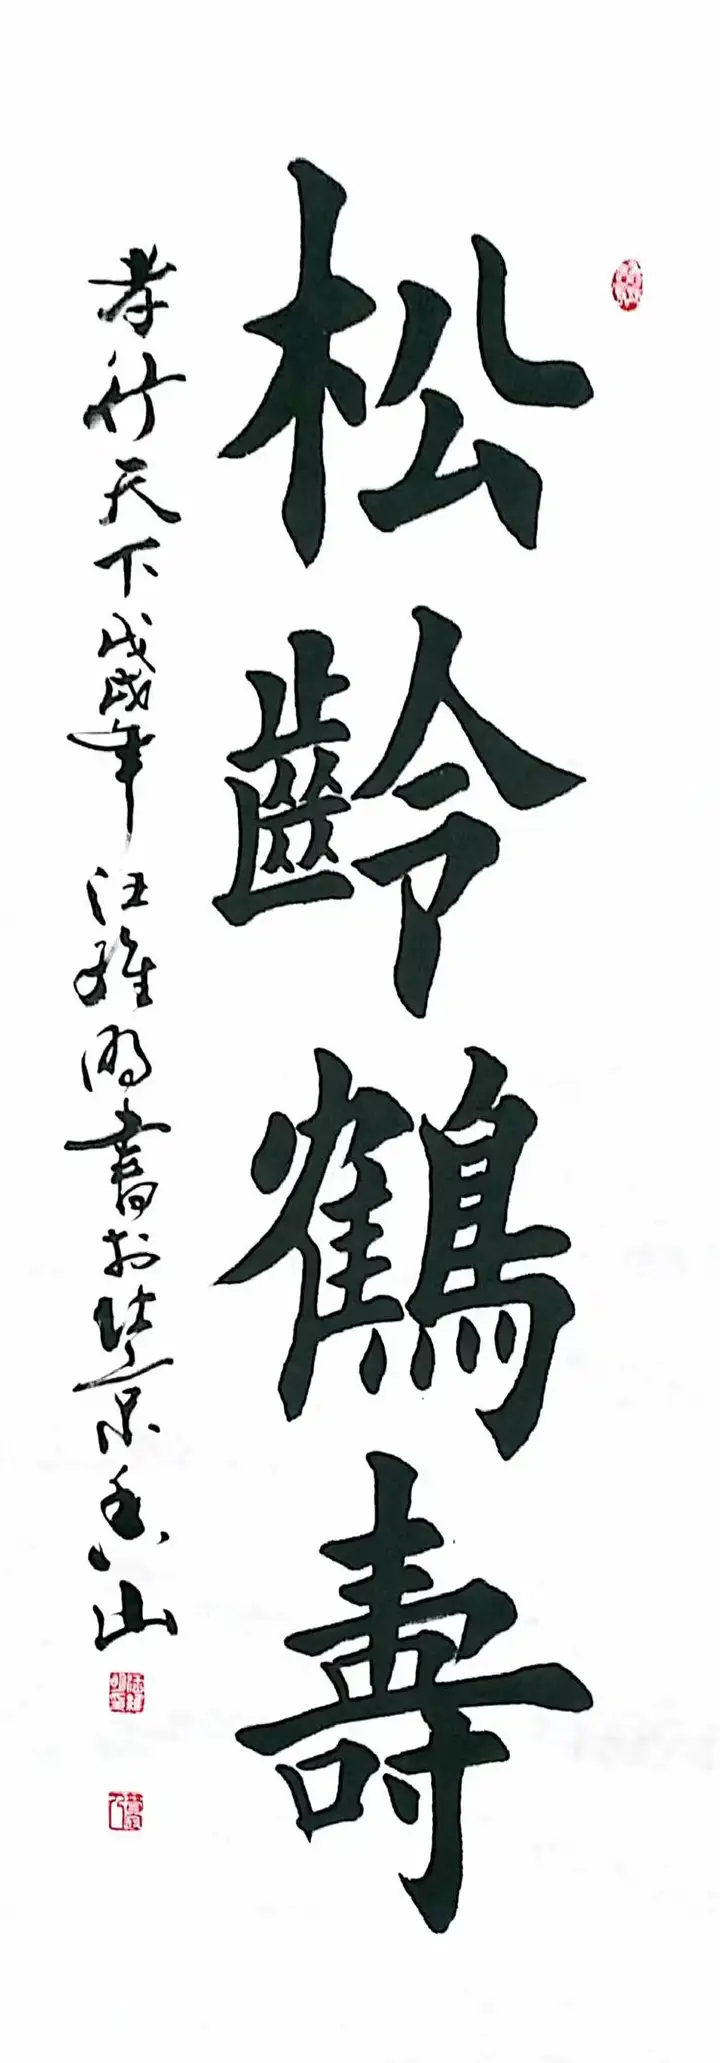 松齡鶴壽
孝行天下戊戌年汪雄明書於北京香山